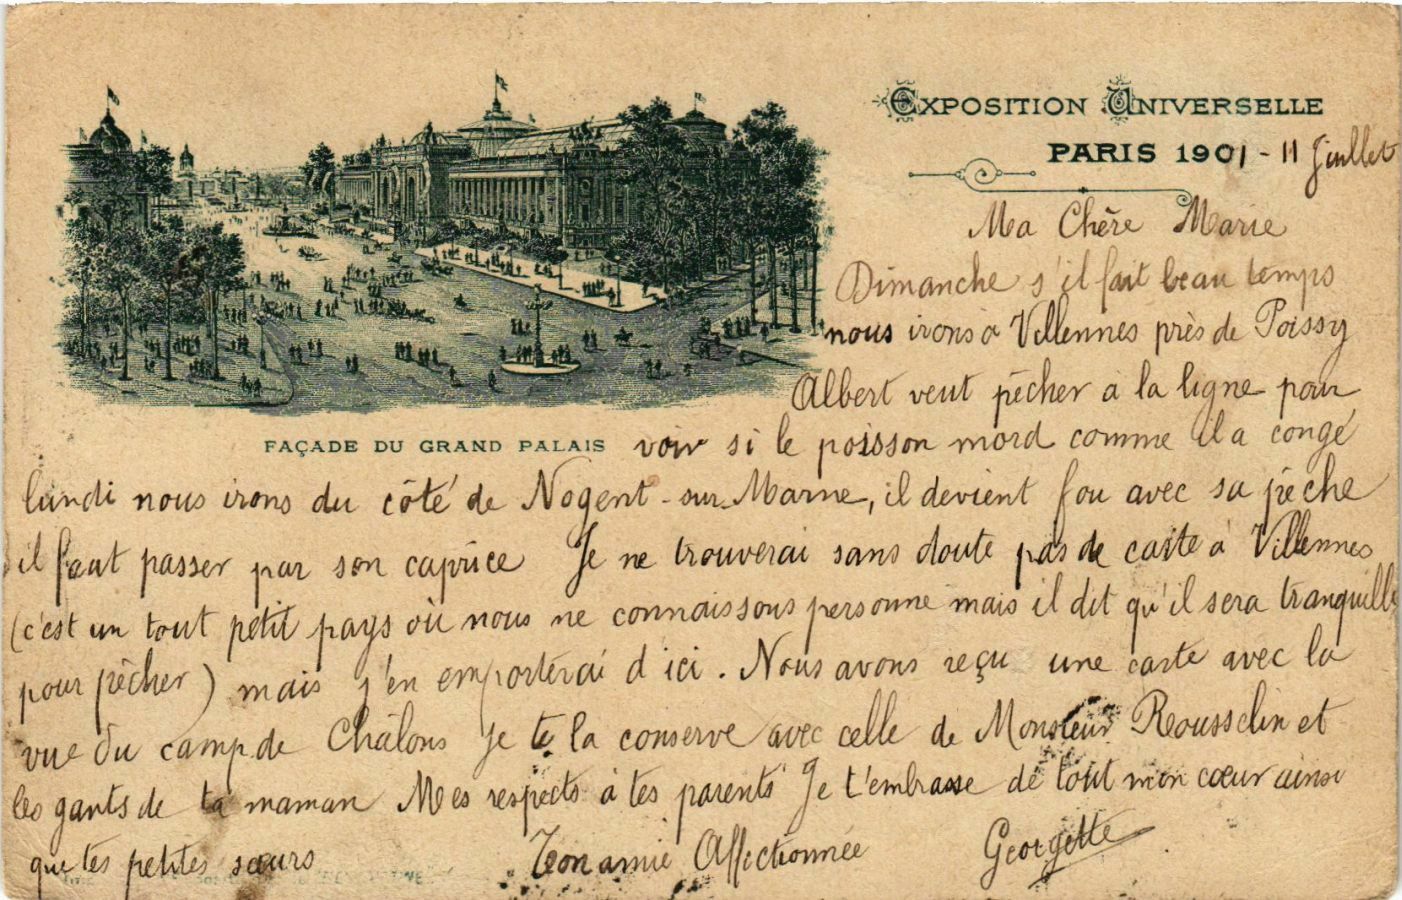 EXPOSITION UNIVERSELLE
PARIS 1901 - 11 Juillet
Ma Chère Marie
Dimanche s'il fait beau temps
nous irons à Villennes près de Poissy
Albert veut pêcher à la ligne pour
FAÇADE DU GRAND PALAIS
voir si le poisson mord comme il a congé
lundi nous irons du côté de Nogent-sur-Marne, il devient fou avec sa pêche
il faut passer par son caprice Je ne trouverai sans doute pas de carte à Villennes
(c'est un tout petit pays où nous ne connaissons personne mais il dit qu'il sera tranquille
pour pêcher) mais j'en emporterai d'ici. Nous avons reçu une carte avec la
vue du camp de Châlons Je te la conserve avec celle de Monsieur Rousselin et
les gants de ta maman Mes respects à tes parents Je t'embrasse de tout mon cœur ainsi
que tes petites sœurs Ton amie Affectionnée Georgette